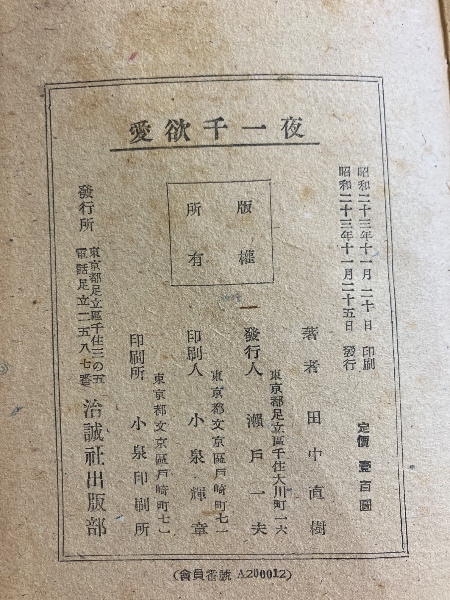 愛欲千一夜
昭和二十三年十一月二十日 印刷
昭和二十三年十一月二十五日 發行
定價 壹百圓
版權
所有
著者 田中直樹
東京都足立區千住大川町一六
發行人 瀬戸一夫
東京都文京區戸崎町七一
印刷人 小泉輝章
東京都文京區戸崎町七一
印刷所 小泉印刷所
發行所 東京都足立區千住三の五
電話足立一五八七番
治誠社出版部
(會員番號 A200012)